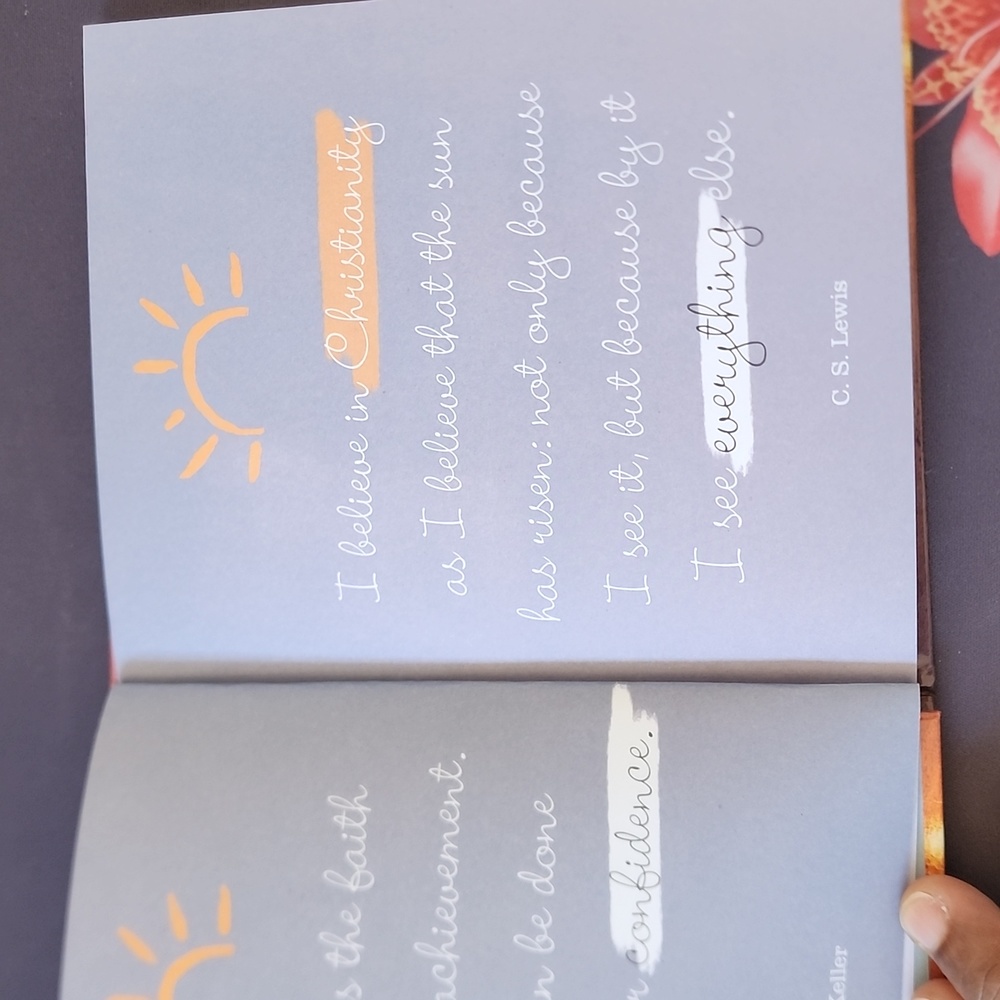 the faith
achievement.
be done
confidence.
I believe in Christianity
as I believe that the sun
has risen: not only because
I see it, but because by it
I see everything else.
C. S. Lewis